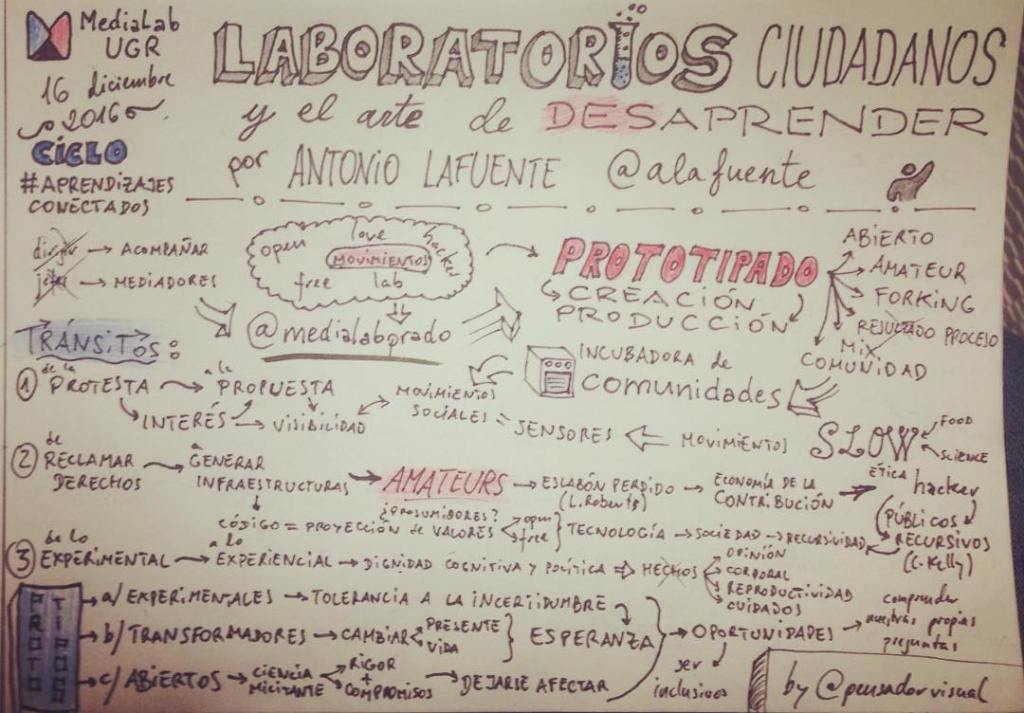 MediaLab
UGR
16 diciembre
2016
CICLO
#APRENDIZAJES
CONECTADOS
LABORATORIOS CIUDADANOS
y el arte de DESAPRENDER
por ANTONIO LAFUENTE @alafuente
dirigir → ACOMPAÑAR
jefes → MEDIADORES
open love hacker
MOVIMIENTOS
free lab
@medialabprado
PROTOTIPADO
CREACIÓN
PRODUCCIÓN
ABIERTO
AMATEUR
FORKING
RESULTADO PROCESO
MIX
COMUNIDAD
INCUBADORA de
comunidades
TRÁNSITOS:
① de la PROTESTA → a la PROPUESTA
INTERÉS → VISIBILIDAD
MOVIMIENTOS
SOCIALES = SENSORES ← MOVIMIENTOS SLOW
FOOD
SCIENCE
② de RECLAMAR
DERECHOS → a GENERAR
INFRAESTRUCTURAS → AMATEURS → ESLABÓN PERDIDO
(L. Roberts) → ECONOMÍA DE LA
CONTRIBUCIÓN → ETICA hacker
¿PROSUMIDORES?
CÓDIGO = PROYECCIÓN de VALORES open
free } TECNOLOGÍA → SOCIEDAD → RECURSIVIDAD
(PÚBLICOS
RECURSIVOS
(C. Kelly)
③ de lo EXPERIMENTAL → a lo EXPERIENCIAL → DIGNIDAD COGNITIVA Y POLÍTICA ⇒ HECHOS
OPINIÓN
CORPORAL
REPRODUCTIVIDAD
CUIDADOS
PROTO
TIPOS
a/ EXPERIMENTALES → TOLERANCIA A LA INCERTIDUMBRE
b/ TRANSFORMADORES → CAMBIAR PRESENTE
VIDA } ESPERANZA
c/ ABIERTOS → CIENCIA
MILITANTE → RIGOR
+
COMPROMISOS → DEJARSE AFECTAR
→ OPORTUNIDADES → comprender
nuestras propias
preguntas
ser
inclusivos
by @pensadorvisual